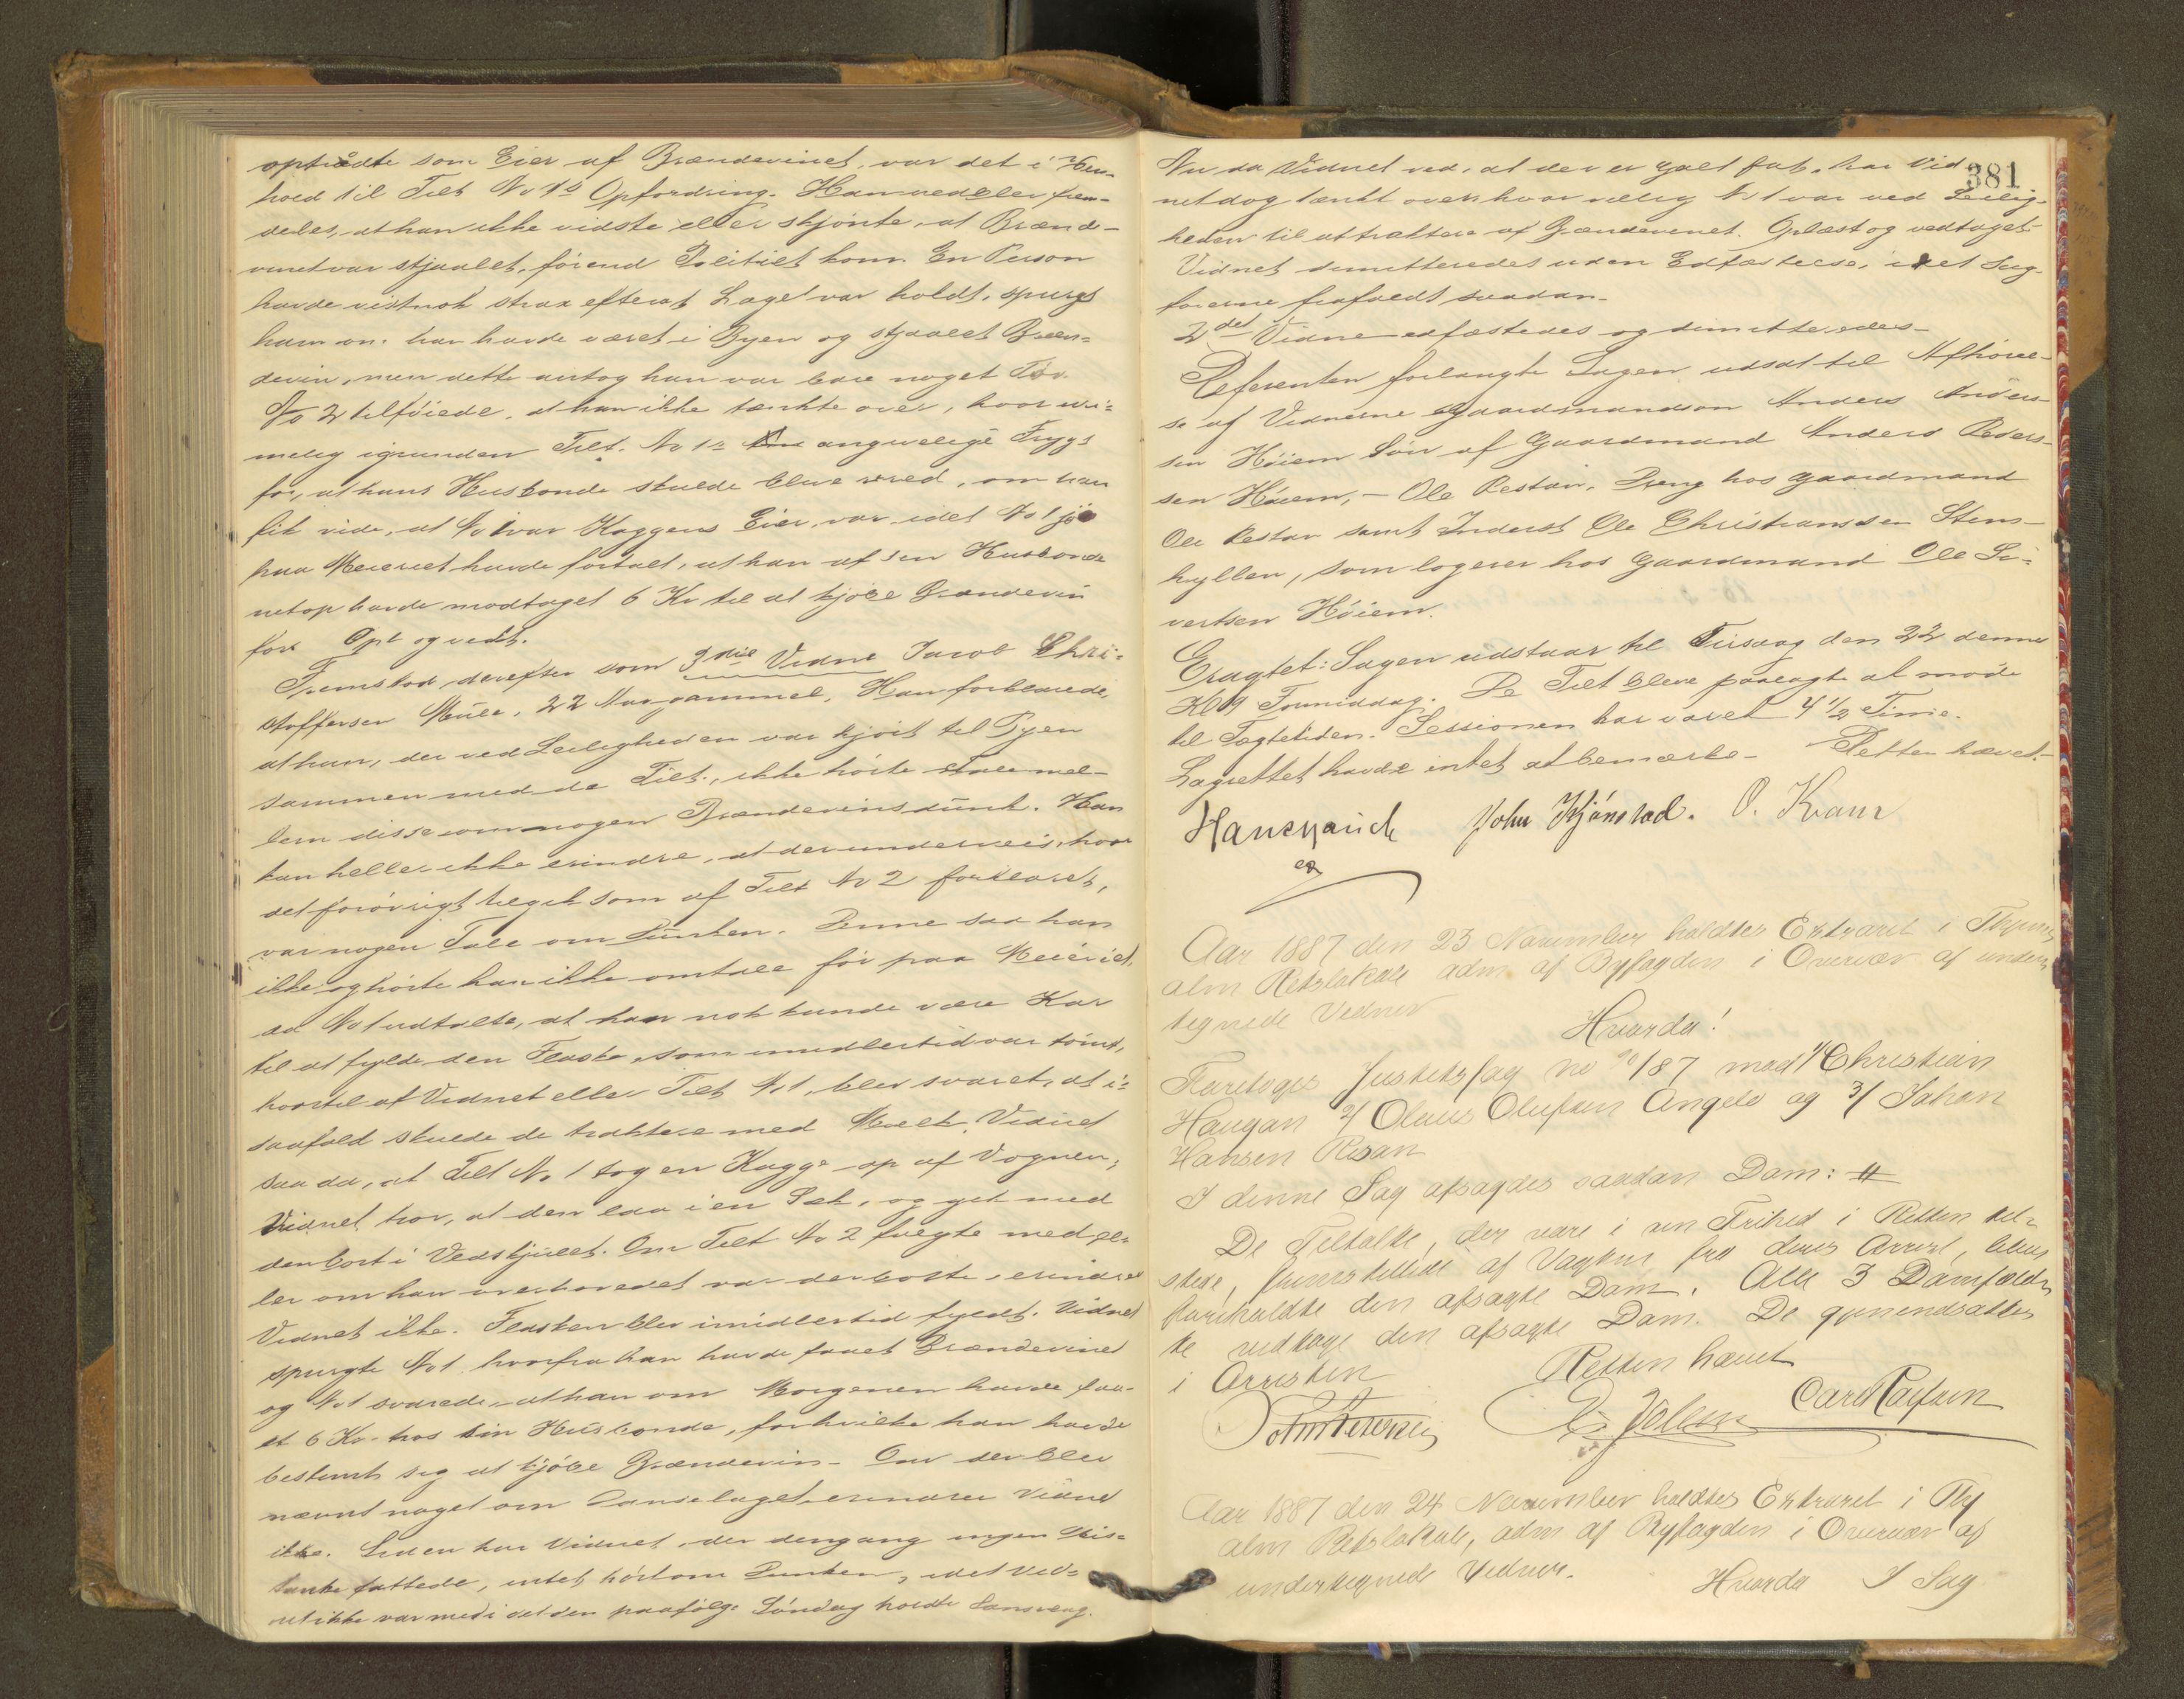 optrådte som Eier af Brændevinet, var det i Hen-
hold til Tilt No 1s Opfordring. Han vedblev frem-
deles, at han ikke vidste eller skjönte, at Brænde-
vinet var stjaalet, förend Politiet kom. En Person
havde vistnok strax efterat Laget var holdt, spurgt
ham om han havde været i Byen og stjaalet Bræn-
devin, men dette antog han var bare noget Töv.
No 2 tilföiede, at han ikke tænkte over, hvor uri-
melig igrunden Tilt. No 1s angivelige Frygt
for, at hans Husbonde skulde blive vred, om han
fik vide, at No 1 var Kaggens Eier, var idet No 1 jo
paa Meieriet havde fortalt, at han af sin Husbonde
netop havde modtaget 6 Kr til at kjöbe Brændevin
for. Opl og vedt.
Fremstod derefter som 3die Vidne Jacob Chri-
stoffersen Mule, 22 Aar gammel. Han forklarede,
at han, der ved Leiligheden var kjört til Byen
sammen med de Tilt., ikke hörte Tale mel-
lem disse om nogen Brændevinsdunk. Han
kan heller ikke erindre, at der underveis, hvor
det forövrigt tilgik som af Tilt No 2 forklaret,
var nogen Tale om Dunken. Denne saa han
ikke og hörte han ikke omtale för paa Meieriet,
da No 1 udtalte, at han nok kunde være Kar
til at fylde den Flaske, som imidlertid var tömt,
hvortil af Vidnet eller Tilt No 1, blev svaret, at i
saafald skulde de traktere med Melk. Vidnet
saa da, at Tilt No. 1 tog en Kagge op af Vognen;
Vidnet tror, at den laa i en Sæk, og gik med
den bort i Vedskjulet. Om Tilt No 2 fulgte med el-
ler om han overhovedet var derborte, erindrer
Vidnet ikke. Flasken blev imidlertid fyldt. Vidnet
spurgte No 1 hvorfra han havde faaet Brændevinet
og No 1 svarede, at han om Morgenen havde faa-
et 6 Kr. hos sin Husbonde, for hvilke han havde
bestemt sig at kjöbe Brændevin. Om der blev
nævnt noget om Danselaget erindrer Vidnet
ikke. Siden har Vidnet, der dengang ingen Mis-
tanke fattede, intet hört om Dunken, idet Vid-
net ikke var med i det den paafölg. Söndag holdte
381
Nu da Vidnet ved, at der er galt fat, har Vid
net dog tænkt over, hvor villig No 1 var ved Leilig-
heden til at traktere af Brændevinet. Oplæst og vedtaget.
Vidnet demitteredes uden Edfæstelse, idet Sag-
förerne frafaldt saadan.
2det Vidne edfæstedes og dimitteredes.
Referenten forlangte Sagen udsat til Afhörel-
se af Vidnerne Gaardmandsön Anders Anders-
sen Höiem Sön af Gaardmand Anders Peders-
sen Höiem, - Ole Restan, Dreng hos Gaardmand
Ole Restan samt Inderst Ole Christianssen Stens-
hyllen, som logerer hos Gaardmand Ole Si-
vertsen Höiem.
Eragtet: Sagen udstaar til Tirsdag den 22 denne
Kl 9 Formiddag. De Tilt bleve paalagte at möde
til Tægtetiden. Sessionen har varet 4 1/2 Time.
Lagrettet havde intet at bemærke. Retten hævet.
John Kjönstad. O. Kvam
Aar 1887 den 23 November holdtes Extraret i Thjems
alm Retslokale adm af Byfogden i Overvær af under
tegnede Vidner
Hvorda!
Foretoges Justitssag no 90/87 mod 1/ Christian
Haugan 2/ Olaus Olufsen Angelo og 3/ Johan
Hansen Risan
I denne Sag afsagdes saadan Dom: #
De Tiltalte, der vare i sin Frihed i Retten til-
stede, fremstillede af Vagten fra deres Arrest, bleve
foreholdte den afsagte Dom. Alle 3 Domfæld
te vedtage den afsagte Dom. De gjenindsattes
i Arresten
Retten hævet
Aar 1887 den 24 November holdtes Extraret i Thj
alm Retslokale, adm af Byfogden i Overvær af
undertegnede Vidner.
Hvorda I Sag